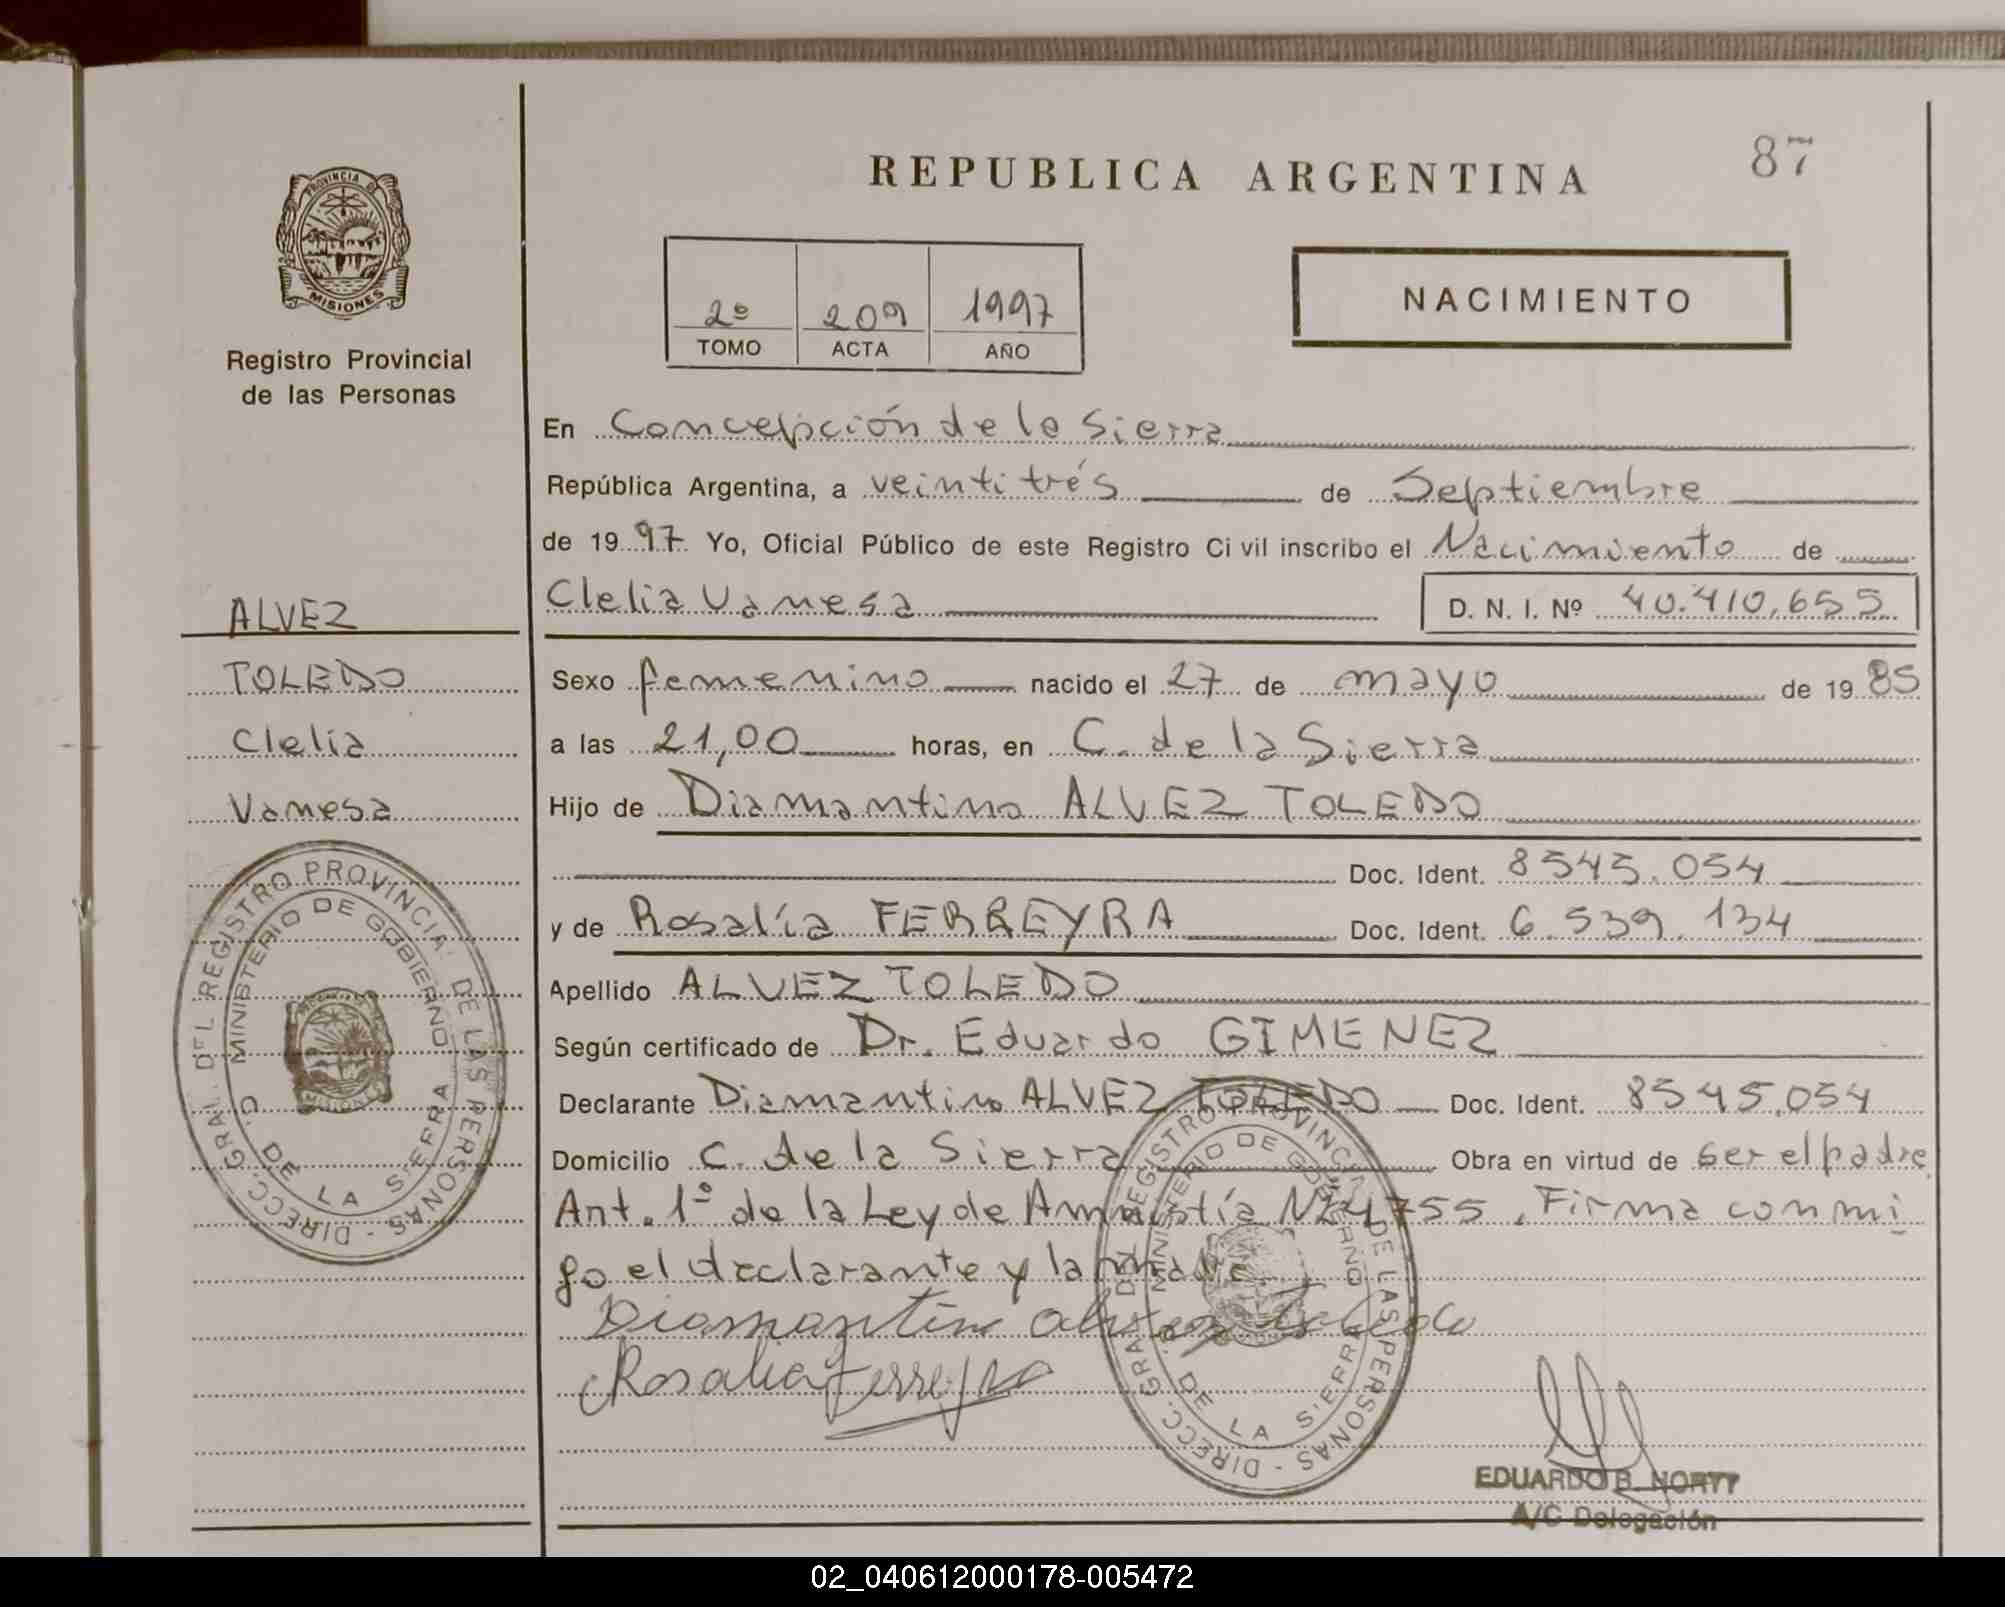 REPUBLICA ARGENTINA
87
PROVINCIA DE
MISIONES
Registro Provincial
de las Personas
2º 209 1997
TOMO ACTA AÑO
NACIMIENTO
En Concepción de la Sierra
República Argentina, a veintitrés de Septiembre
de 1997 Yo, Oficial Público de este Registro Civil inscribo el Nacimiento de
Clelia Vanesa D. N. I. Nº 40.410.655
ALVEZ
TOLEDO
Clelia
Vanesa
Sexo femenino nacido el 27 de mayo de 1985
a las 21,00 horas, en C. de la Sierra
Hijo de Diamantino ALVEZ TOLEDO
Doc. Ident. 8545.054
y de Rosalía FERREYRA Doc. Ident. 6.539.134
Apellido ALVEZ TOLEDO
Según certificado de Dr. Eduardo GIMENEZ
Declarante Diamantino ALVEZ TOLEDO Doc. Ident. 8545.054
Domicilio C. de la Sierra Obra en virtud de ser el padre
Art. 1º de la Ley de Amnistía Nº 24755. Firma conmi
go el declarante y la madre.
Diamantino Alvez Toledo
Rosalia Ferreyra
DIRECC. GRAL. DEL REGISTRO PROVINCIAL DE LAS PERSONAS
MINISTERIO DE GOBIERNO
C. DE LA SIERRA
MISIONES
DIRECC. GRAL. DEL REGISTRO PROVINCIAL DE LAS PERSONAS
MINISTERIO DE GOBIERNO
DE LA SIERRA
EDUARDO B. NORTY
A/C Delegación
02_040612000178-005472